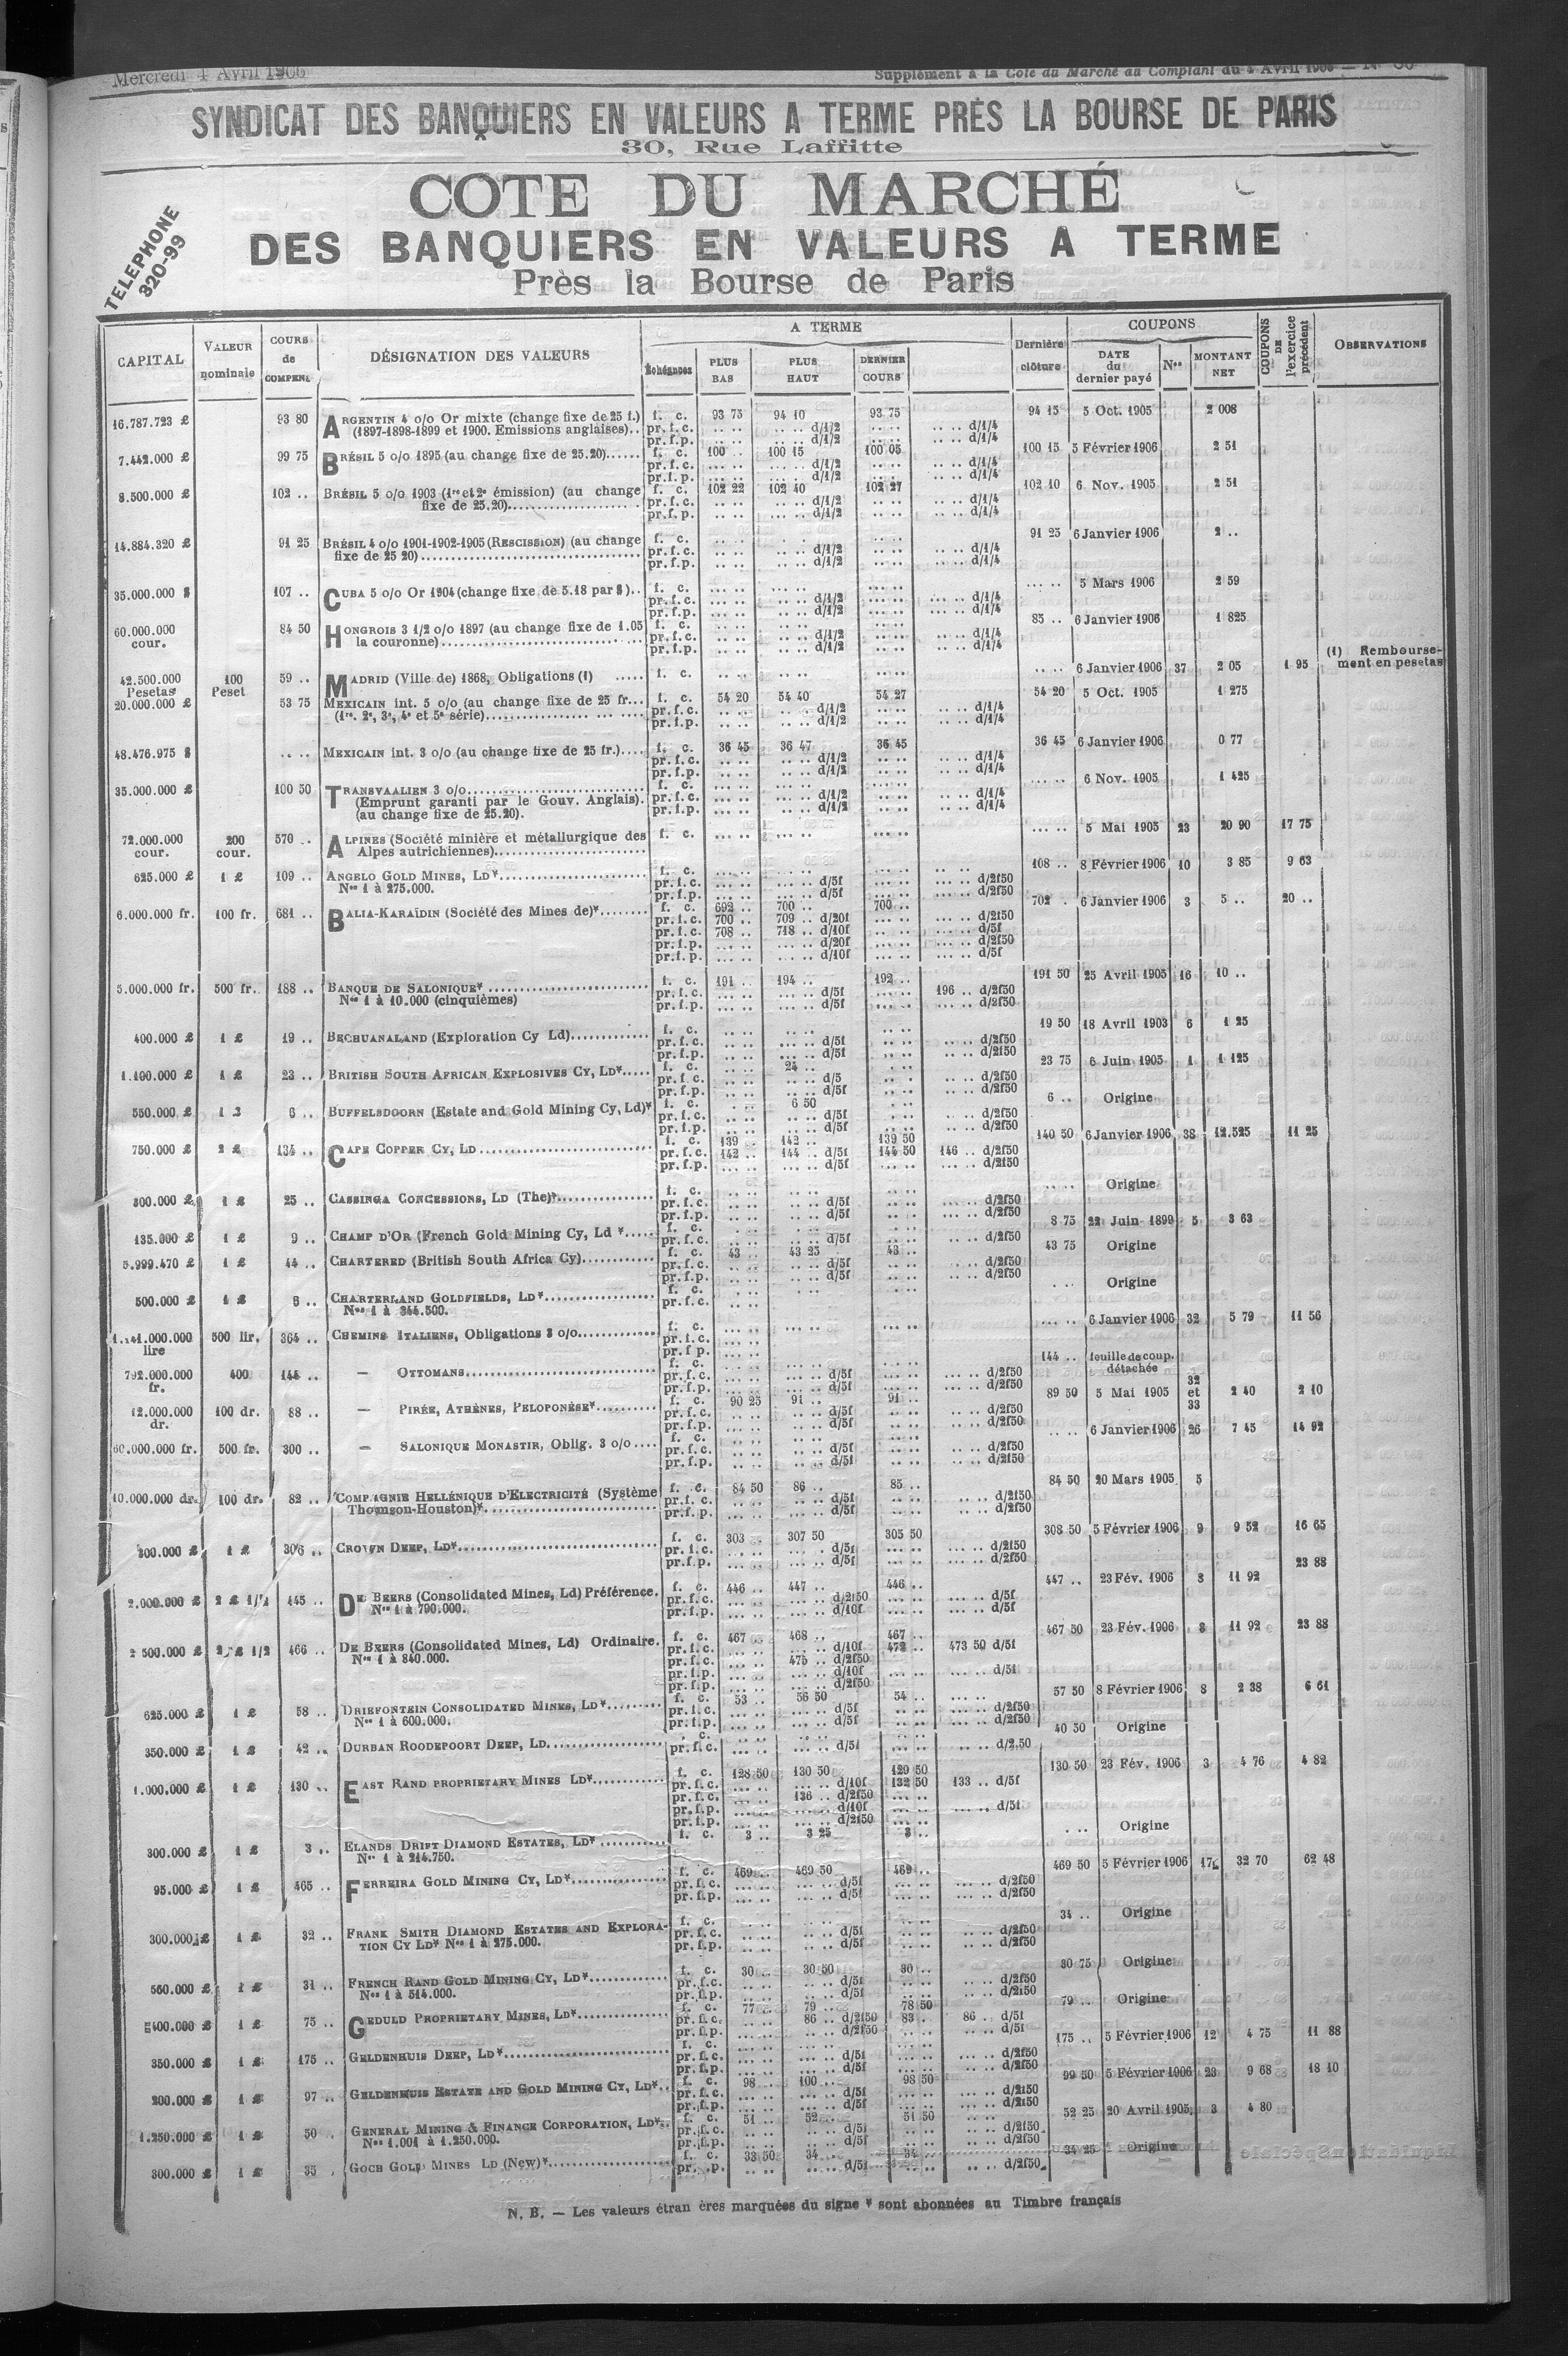 Mercredi 4 Avril 1906
Supplément à la Cote du Marché au Comptant du 4 Avril 1906 —
SYNDICAT DES BANQUIERS EN VALEURS A TERME PRÈS LA BOURSE DE PARIS
30, Rue Laffitte
COTE DU MARCHÉ
DES BANQUIERS EN VALEURS A TERME
Près la Bourse de Paris
TELEPHONE
320-99
CAPITAL VALEUR nominale COURS de COMPENS. DÉSIGNATION DES VALEURS A TERME Échéances PLUS BAS PLUS HAUT DERNIER COURS Dernière clôture COUPONS DATE du dernier payé Nos MONTANT NET COUPONS DE l'exercice précédent OBSERVATIONS
16.787.723 £ 93 80 ARGENTIN 4 o/o Or mixte (change fixe de 25 f.) f. c. 93 75 94 10 93 75 94 15 5 Oct. 1905 2 008
(1897-1898-1899 et 1900. Emissions anglaises).. pr.f.c. .. .. .. .. d/1/2 .. .. .. .. d/1/4
pr.f.p. .. .. .. .. d/1/2 .. .. .. .. d/1/4
7.442.000 £ 99 75 BRÉSIL 5 o/o 1895 (au change fixe de 25.20)...... f. c. 100 .. 100 15 100 05 100 15 5 Février 1906 2 51
pr.f.c. .. .. .. .. d/1/2 .. .. .. .. d/1/4
pr.f.p. .. .. .. .. d/1/2 .. .. .. .. d/1/4
8.500.000 £ 102 .. BRÉSIL 5 o/o 1903 (1re et 2e émission) (au change f. c. 102 22 102 40 102 27 102 10 6 Nov. 1905 2 51
fixe de 25.20)........ pr.f.c. .. .. .. .. d/1/2 .. .. .. .. d/1/4
pr.f.p. .. .. .. .. d/1/2 .. .. .. .. d/1/4
14.884.320 £ 91 25 BRÉSIL 4 o/o 1901-1902-1905 (RESCISSION) (au change f. c. 91 25 6 Janvier 1906 2 ..
fixe de 25 20)........ pr.f.c. .. .. .. .. d/1/2 .. .. .. .. d/1/4
pr.f.p. .. .. .. .. d/1/2 .. .. .. .. d/1/4
35.000.000 $ 107 .. CUBA 5 o/o Or 1904 (change fixe de 5.18 par $).. f. c. ... .. 5 Mars 1906 2 59
pr.f.c. ... .. .. .. d/1/2 ... .. ... .. d/1/4
pr.f.p. ... .. .. .. d/1/2 ... .. ... .. d/1/4
60.000.000 cour. 84 50 HONGROIS 3 1/2 o/o 1897 (au change fixe de 1.05 f. c. 85 .. 6 Janvier 1906 1 825
la couronne)........ pr.f.c. .. .. .. .. d/1/2 .. .. .. .. d/1/4
pr.f.p. .. .. .. .. d/1/2 .. .. .. .. d/1/4
42.500.000 Pesetas 100 Peset 59 .. MADRID (Ville de) 1868, Obligations (1) ..... f. c. .. .. 6 Janvier 1906 37 2 05 1 95 (1) Remboursement en pesetas
20.000.000 £ 53 75 MEXICAIN int. 5 o/o (au change fixe de 25 fr... f. c. 54 20 54 40 54 27 54 20 5 Oct. 1905 1 275
(1re. 2e, 3e, 4e et 5e série)........ pr.f.c. .. .. .. .. d/1/2 .. .. .. .. d/1/4
pr.f.p. .. .. .. .. d/1/2 .. .. .. .. d/1/4
48.476.975 $ .. .. MEXICAIN int. 3 o/o (au change fixe de 25 fr.).... f. c. 36 45 36 47 36 45 36 45 6 Janvier 1906 0 77
pr.f.c. .. .. .. .. d/1/2 .. .. .. .. d/1/4
pr.f.p. .. .. .. .. d/1/2 .. .. .. .. d/1/4
35.000.000 £ 100 50 TRANSVAALIEN 3 o/o........ f. c. ... .. 6 Nov. 1905 1 425
(Emprunt garanti par le Gouv. Anglais). pr.f.c. ... .. .. .. d/1/2 ... .. .. .. d/1/4
(au change fixe de 25.20). pr.f.p. ... .. .. .. d/1/2 ... .. .. .. d/1/4
72.000.000 cour. 200 cour. 570 .. ALPINES (Société minière et métallurgique des f. c. ... .. 5 Mai 1905 23 20 90 17 75
Alpes autrichiennes)........
625.000 £ 1 £ 109 .. ANGELO GOLD MINES, LD*........ f. c. 108 .. 8 Février 1906 10 3 85 9 63
Nos 1 à 275.000. pr.f.c. ... .. ... .. d/5f ... .. ... .. d/2f50
pr.f.p. ... .. ... .. d/5f ... .. ... .. d/2f50
6.000.000 fr. 100 fr. 681 .. BALIA-KARAÏDIN (Société des Mines de)*........ f. c. 692 .. 700 .. 700 .. 702 . 6 Janvier 1906 3 5 .. 20 ..
pr.f.c. 700 .. 709 .. d/20f ... .. ... .. d/2f50
pr.f.c. 708 .. 718 .. d/10f ... .. ... .. d/5f
pr.f.p. ... .. ... .. d/20f ... .. ... .. d/2f50
pr.f.p. ... .. ... .. d/10f ... .. ... .. d/5f
5.000.000 fr. 500 fr. 188 .. BANQUE DE SALONIQUE*........ f. c. 191 .. 194 .. 192 .. 191 50 25 Avril 1905 16 10 ..
Nos 1 à 10.000 (cinquièmes) pr.f.c. ... .. ... .. d/5f ... .. 196 .. d/2f50
pr.f.p. ... .. ... .. d/5f ... .. ... .. d/2f50
400.000 £ 1 £ 19 .. BECHUANALAND (Exploration Cy Ld)........ f. c. 19 50 18 Avril 1903 6 1 25
pr.f.c. .. .. ... .. d/5f .. .. .. .. d/2f50
pr.f.p. .. .. ... .. d/5f .. .. .. .. d/2f50
1.100.000 £ 1 £ 23 .. BRITISH SOUTH AFRICAN EXPLOSIVES CY, LD*..... f. c. 24 .. 23 75 6 Juin 1905 1 1 125
pr.f.c. .. .. .. .. d/5 .. .. .. d/2f50
pr.f.p. .. .. .. .. d/5f .. .. .. d/2f50
550.000 £ 1 6 .. BUFFELSDOORN (Estate and Gold Mining Cy, Ld)* f. c. 6 50 6 .. Origine
pr.f.c. .. .. .. .. d/5f .. .. .. .. d/2f50
pr.f.p. .. .. .. .. d/5f .. .. .. .. d/2f50
750.000 £ 2 £ 134 .. CAPE COPPER CY, LD........ f. c. 139 .. 142 .. 139 50 140 50 6 Janvier 1906 38 12.525 11 25
pr.f.c. 142 .. 144 .. d/5f 144 50 146 .. d/2f50
pr.f.p. ... .. ... .. d/5f ... .. ... .. d/2f50
300.000 £ 1 £ 25 .. CASSINGA CONCESSIONS, LD (The)*........ f. c. .. .. Origine
pr.f.c. .. .. .. .. d/5f .. .. ... .. d/2f50
pr.f.p. .. .. .. .. d/5f .. .. ... .. d/2f50
135.000 £ 1 £ 9 .. CHAMP D'OR (French Gold Mining Cy, Ld *..... f. c. 8 75 22 Juin 1899 5 3 63
pr.f.c. .. .. .. .. d/5f .. .. .. .. d/2f50
5.999.470 £ 1 £ 44 .. CHARTERED (British South Africa Cy)........ f. c. 43 .. 43 25 43 .. 43 75 Origine
pr.f.c. .. .. .. .. d/5f .. .. .. .. d/2f50
pr.f.p. .. .. .. .. d/5f .. .. .. .. d/2f50
500.000 £ 1 £ 6 .. CHARTERLAND GOLDFIELDS, LD*........ f. c. . .. Origine
Nos 1 à 344.500. pr.f.c. .. ..
1.141.000.000 lire 500 lir. 364 .. CHEMINS ITALIENS, Obligations 3 o/o........ f. c. ... .. 6 Janvier 1906 32 5 79 11 56
pr.f.c. ... ..
pr.f.p. ... ..
792.000.000 fr. 400 145 .. — OTTOMANS........ f. c. 144 .. feuille de coup. détachée
pr.f.c. ... .. ... .. d/5f ... .. ... .. d/2f50
pr.f.p. ... .. ... .. d/5f ... .. ... .. d/2f50
12.000.000 dr. 100 dr. 88 .. — PIRÉE, ATHÈNES, PELOPONÈSE*........ f. c. 90 25 91 .. 91 .. 89 50 5 Mai 1905 32 et 33 2 40 2 10
pr.f.c. .. .. .. .. d/5f .. .. .. .. d/2f50
pr.f.p. .. .. .. .. d/5f .. .. .. .. d/2f50
60.000.000 fr. 500 fr. 300 .. — SALONIQUE MONASTIR, Oblig. 3 o/o.... f. c. .. .. 6 Janvier 1906 26 7 45 14 92
pr.f.c. .. .. .. .. d/5f .. .. .. .. d/2f50
pr.f.p. .. .. .. .. d/5f .. .. .. .. d/2f50
10.000.000 dr. 100 dr. 82 .. COMPAGNIE HELLÉNIQUE D'ELECTRICITÉ (Système f. c. 84 50 86 .. 85 .. 84 50 20 Mars 1905 5
Thomson-Houston)*........ pr.f.c. .. .. .. .. d/5f .. .. .. .. d/2f50
pr.f.p. ... .. .. .. d/5f .. .. .. .. d/2f50
300.000 £ 1 £ 306 .. CROWN DEEP, LD*........ f. c. 303 .. 307 50 305 50 308 50 5 Février 1906 9 9 52 16 65
pr.f.c. ... .. ... .. d/5f ... .. ... .. d/2f50
pr.f.p. ... .. ... .. d/5f ... .. ... .. d/2f50
2.000.000 £ 2 £ 1/2 445 .. DE BEERS (Consolidated Mines, Ld) Préférence. f. c. 446 .. 447 .. 446 .. 447 .. 23 Fév. 1906 8 11 92 23 88
Nos 1 à 790.000. pr.f.c. ... .. ... .. d/2f50 ... .. ... .. d/5f
pr.f.p. ... .. ... .. d/10f ... .. ... .. d/5f
2 500.000 £ 2 £ 1/2 466 .. DE BEERS (Consolidated Mines, Ld) Ordinaire. f. c. 467 .. 468 .. 467 .. 467 50 23 Fév. 1906 8 11 92 23 88
Nos 1 à 840.000. pr.f.c. ... .. ... .. d/10f 472 .. 473 50 d/5f
pr.f.c. ... .. 475 .. d/2f50
pr.f.p. ... .. ... .. d/10f ... .. ... .. d/5f
pr.f.p. ... .. ... .. d/2f50
625.000 £ 1 £ 58 .. DRIEFONTEIN CONSOLIDATED MINES, LD*........ f. c. 53 .. 56 50 54 .. 57 50 8 Février 1906 8 2 38 6 61
Nos 1 à 600.000. pr.f.c. ... .. ... .. d/5f .. .. ... .. d/2f50
pr.f.p. ... .. ... .. d/5f .. .. ... .. d/2f50
350.000 £ 1 £ 42 .. DURBAN ROODEPOORT DEEP, LD........ f. c. 40 50 Origine
pr.f.c. ... .. ... .. d/5f ... .. .. .. d/2.50
1.000.000 £ 1 £ 130 .. EAST RAND PROPRIETARY MINES LD*........ f. c. 128 50 130 50 129 50 130 50 23 Fév. 1906 3 4 76 4 82
pr.f.c. ... .. ... .. d/10f 132 50 133 .. d/5f
pr.f.c. ... .. 136 .. d/2f50 ... ..
pr.f.p. ... .. ... .. d/10f ... .. ... .. d/5f
pr.f.p. ... .. ... .. d/2f50 ... ..
300.000 £ 1 £ 3 .. ELANDS DRIFT DIAMOND ESTATES, LD*........ f. c. 3 .. 3 25 3 .. . .. Origine
Nos 1 à 214.750.
95.000 £ 1 £ 465 .. FERREIRA GOLD MINING CY, LD*........ f. c. 469 .. 469 50 469 .. 469 50 5 Février 1906 17 32 70 62 48
pr.f.c. ... .. ... .. d/5f ... .. ... .. d/2f50
pr.f.p. ... .. ... .. d/5f ... .. ... .. d/2f50
300.000 £ 1 £ 32 .. FRANK SMITH DIAMOND ESTATES AND EXPLORA- f. c. 34 .. Origine
TION CY LD* Nos 1 à 275.000. pr.f.c. .. .. .. .. d/5f .. .. .. .. d/2f50
pr.f.p. .. .. .. .. d/5f .. .. .. .. d/2f50
560.000 £ 1 £ 31 .. FRENCH RAND GOLD MINING CY, LD*........ f. c. 30 .. 30 50 30 .. 30 75 Origine
Nos 1 à 514.000. pr.f.c. .. .. .. .. d/5f .. .. .. .. d/2f50
pr.f.p. .. .. .. .. d/5f .. .. .. .. d/2f50
400.000 £ 1 £ 75 .. GEDULD PROPRIETARY MINES, LD*........ f. c. 77 .. 79 .. 78 50 79 .. Origine
pr.f.c. .. .. 86 .. d/2f50 83 . 86 .. d/5f
pr.f.p. .. .. .. .. d/2f50 .. .. .. .. d/5f
350.000 £ 1 £ 175 .. GELDENHUIS DEEP, LD*........ f. c. 175 .. 5 Février 1906 12 4 75 11 88
pr.f.c. ... .. ... .. d/5f ... .. ... .. d/2f50
pr.f.p. ... .. ... .. d/5f ... .. ... .. d/2f50
200.000 £ 1 £ 97 .. GELDENHUIS ESTATE AND GOLD MINING CY, LD*.. f. c. 98 .. 100 .. 98 50 99 50 5 Février 1906 23 9 68 18 10
pr.f.c. ... .. ... .. d/5f ... .. ... .. d/2f50
pr.f.p. ... .. ... .. d/5f ... .. ... .. d/2f50
1.250.000 £ 1 £ 50 . GENERAL MINING & FINANCE CORPORATION, LD*.. f. c. 51 .. 52 .. 51 50 52 25 20 Avril 1905 3 4 80
Nos 1.001 à 1.250.000. pr.f.c. .. .. .. .. d/5f .. .. .. .. d/2f50
pr.f.p. .. .. .. .. d/5f .. .. .. .. d/2f50
300.000 £ 1 £ 35 . GOCH GOLD MINES LD (New)*........ f. c. 33 50 34 .. 34 .. 34 25 Origine
pr. .p. .. .. .. .. d/5f .. .. .. .. d/2f50
N. B. — Les valeurs étran ères marquées du signe * sont abonnées au Timbre français